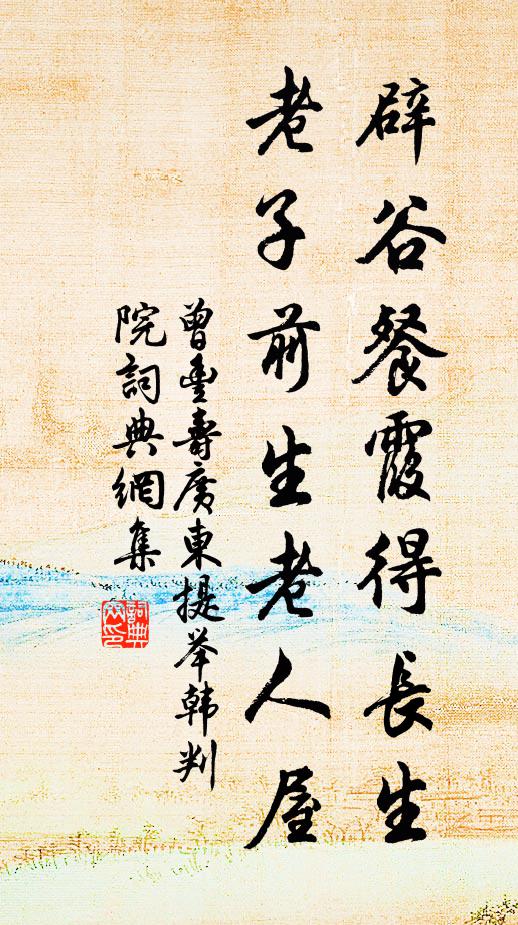 辟谷餐霞得長生
老子前生老人屋
曾豊壽廣東提举韩判
院詞典網集
詞典
网印